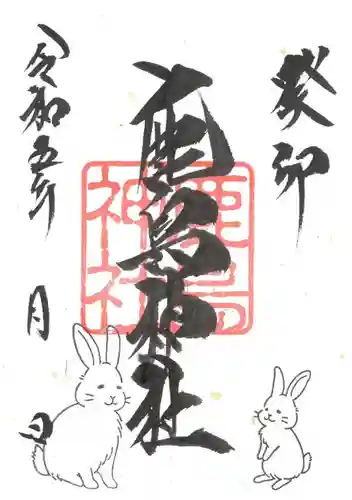 癸卯
鹿島神社
鹿島神社
令和五年
月
日